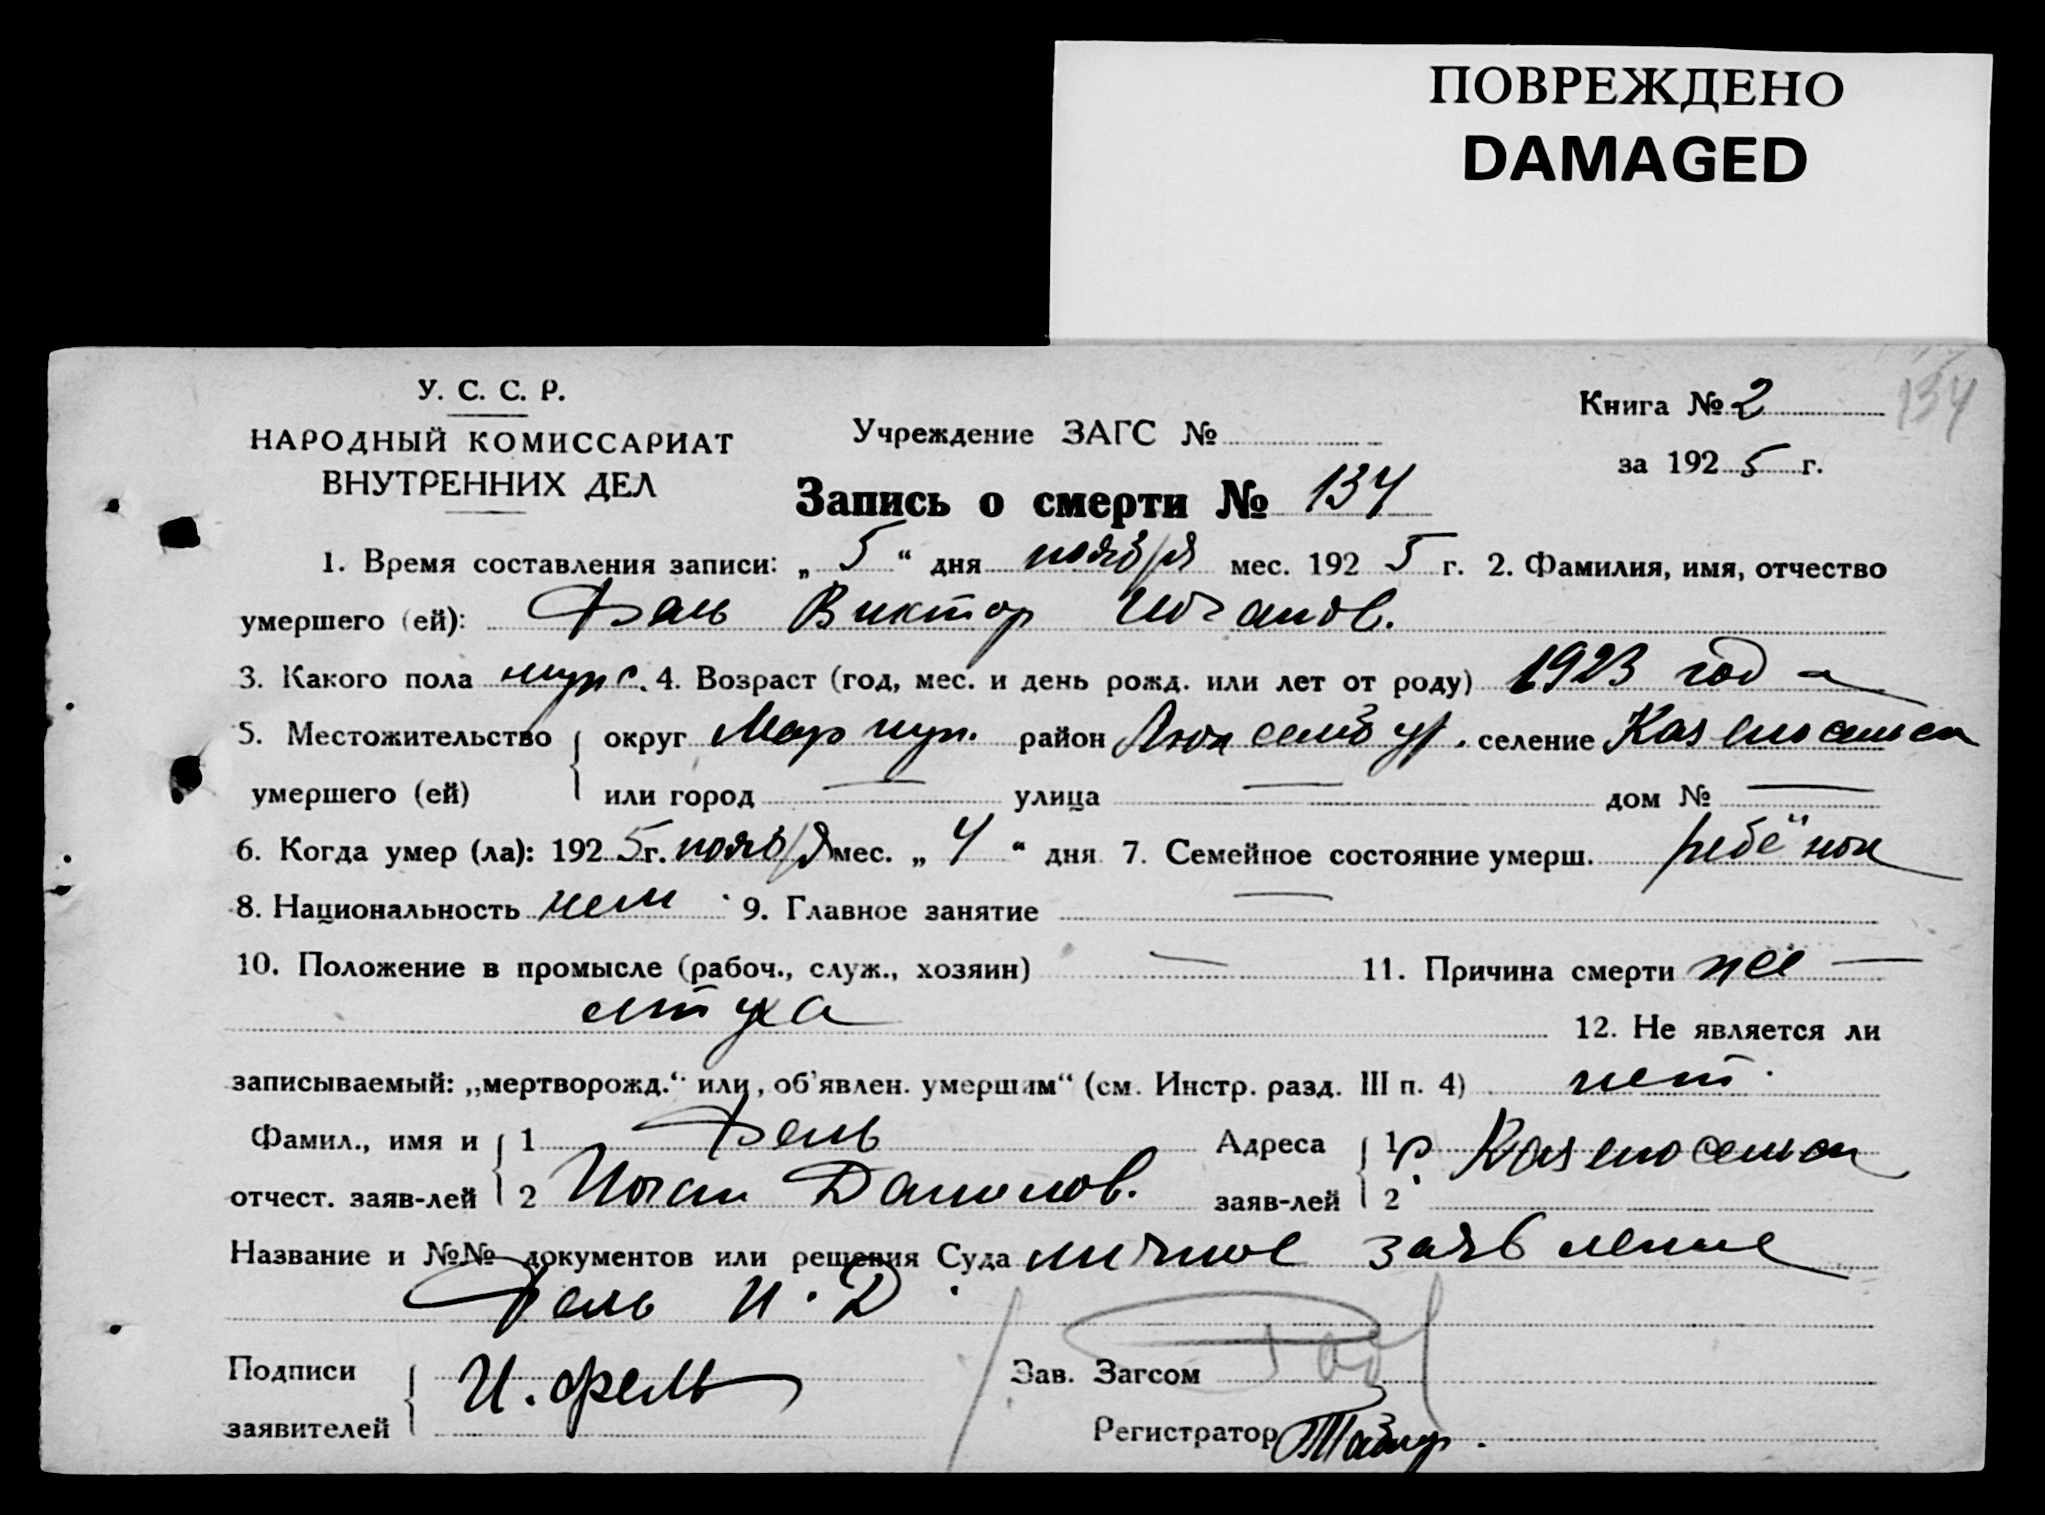 ПОВРЕЖДЕНО
DAMAGED
У. С. С. Р.
НАРОДНЫЙ КОМИССАРИАТ
ВНУТРЕННИХ ДЕЛ
Учреждение ЗАГС №
Книга № 2
134
за 1925 г.
Запись о смерти № 134
1. Время составления записи: „5“ дня ноября мес. 1925 г. 2. Фамилия, имя, отчество
умершего (ей): Фель Виктор Иоганов.
3. Какого пола мужс. 4. Возраст (год, мес. и день рожд. или лет от роду) 1923 год
5. Местожительство округ Мариуп. район Люксембур. селение Казеносельск
умершего (ей) или город — улица — дом № —
6. Когда умер (ла): 1925 г. ноября мес. „4“ дня 7. Семейное состояние умерш. ребёнок
8. Национальность нем 9. Главное занятие —
10. Положение в промысле (рабоч., служ., хозяин) — 11. Причина смерти
12. Не является ли
записываемый: „мертворожд.“ или „об'явлен. умершим“ (см. Инстр. разд. III п. 4) нет.
Фамил., имя и 1 Фель Адреса 1 Казеносельск
отчест. заяв-лей 2 Иоган Данилов. заяв-лей 2
Название и №№ документов или решения Суда личное заявление
Фель И. Д.
Подписи И. Фель Зав. Загсом
заявителей Регистратор